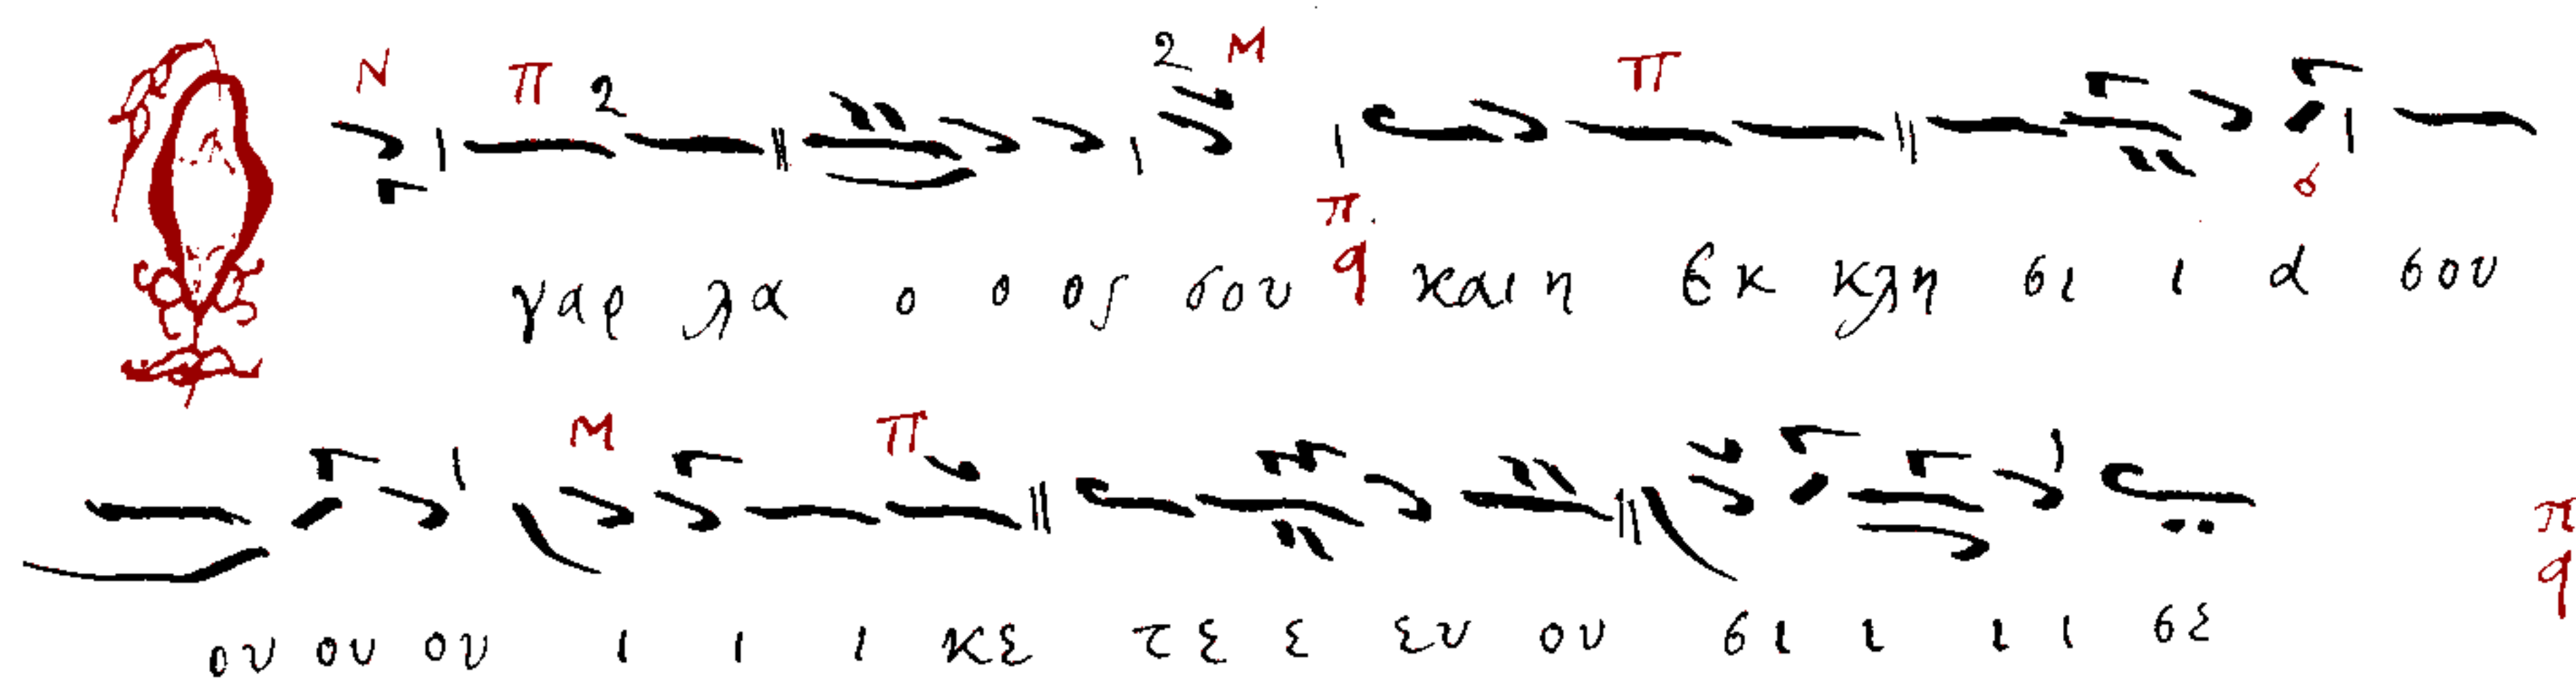 Ν Π Μ Π
Ο γαρ λα ο ο ος σου π. q και η Εκ κλη σι ι α σου
Μ Π
ου ου ου ι ι ι κε τε ε ευ ου σι ι ι ι σε π q